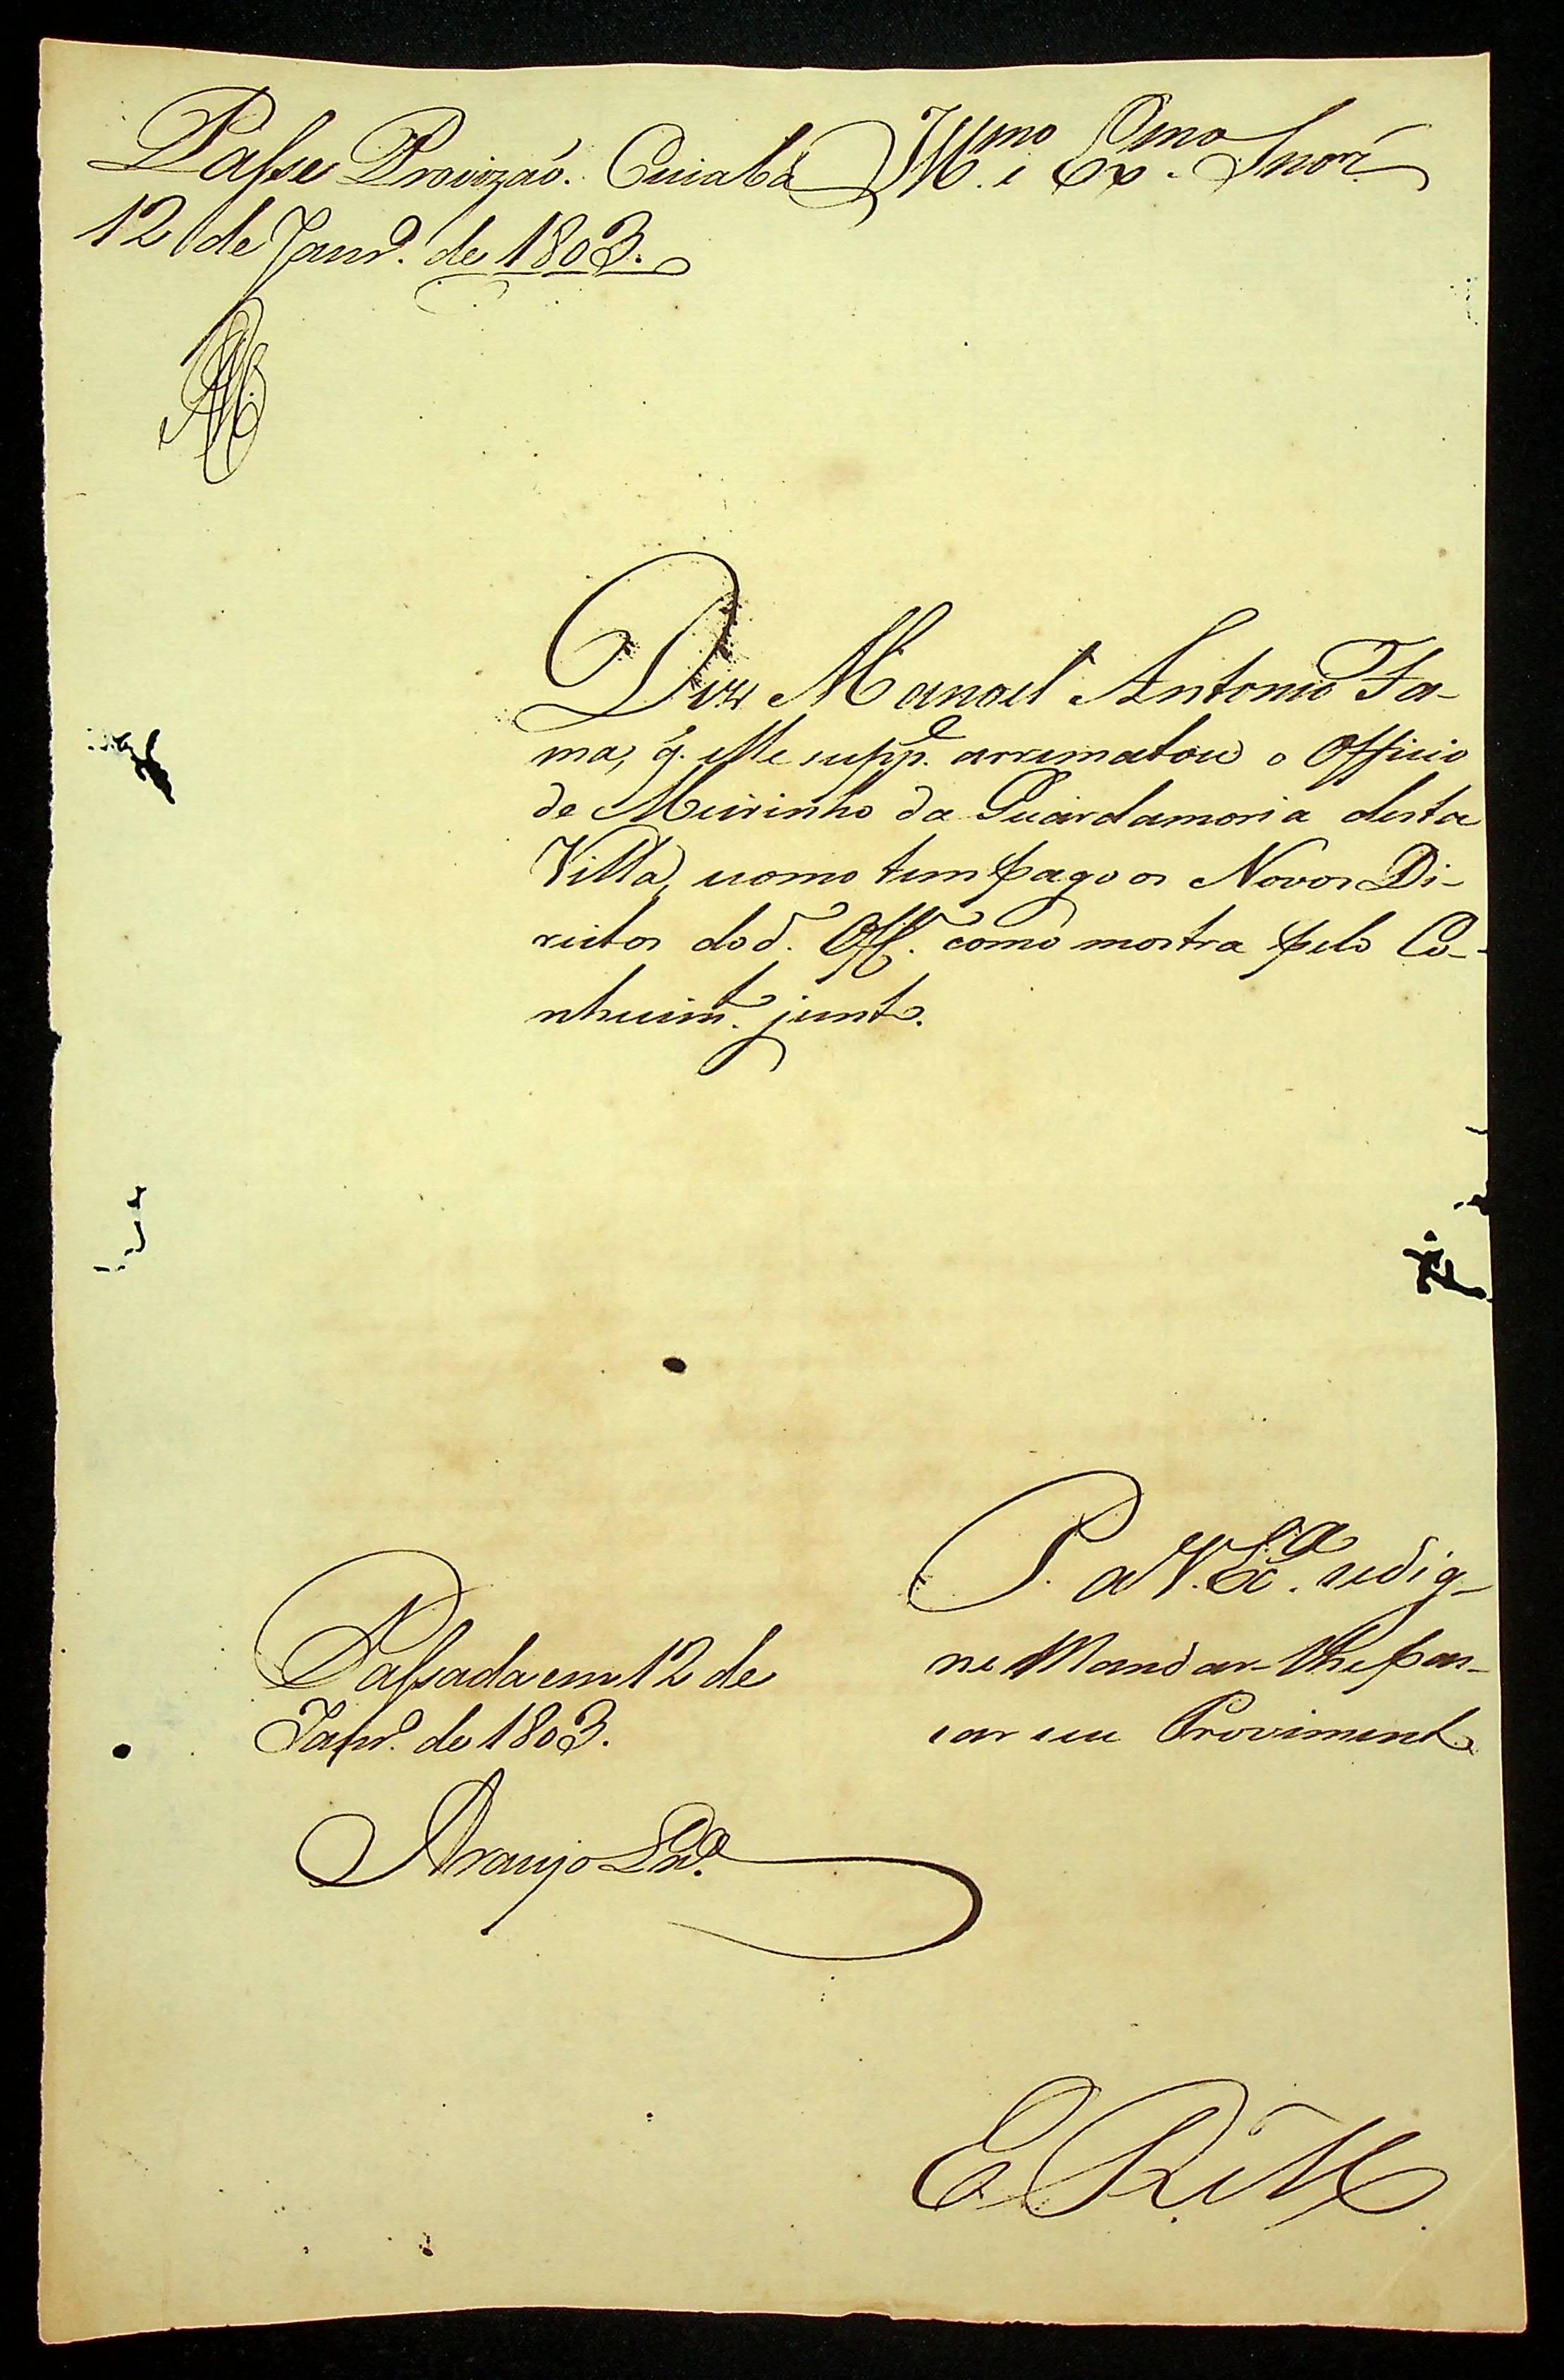 Passe Provizaó. Cuiabá
12 de Janr.º de 1803.
Ill.mo e Ex.mo Snor.
Diz Manoel Antonio Fa-
ma, q. elle supp.e arrematou o Officio
de Meirinho da Guardamoria desta
Villa, como tem pago os Novos Di-
reitos do d.º Off.º como mostra pelo Co-
nhecim.to junto.
P. a V. Ex.ca se dig-
ne Mandar-lhe pas-
sar seu Provimento
Passada em 12 de
Janr.º de 1803.
Araujo
E R M.